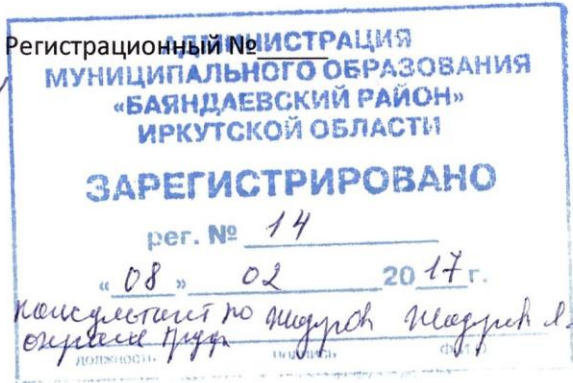 Регистрационный №
АДМИНИСТРАЦИЯ
МУНИЦИПАЛЬНОГО ОБРАЗОВАНИЯ
«БАЯНДАЕВСКИЙ РАЙОН»
ИРКУТСКОЙ ОБЛАСТИ
ЗАРЕГИСТРИРОВАНО
рег. № 14
« 08 » 02 20 17 г.
консультант по
охране труда
должность подпись